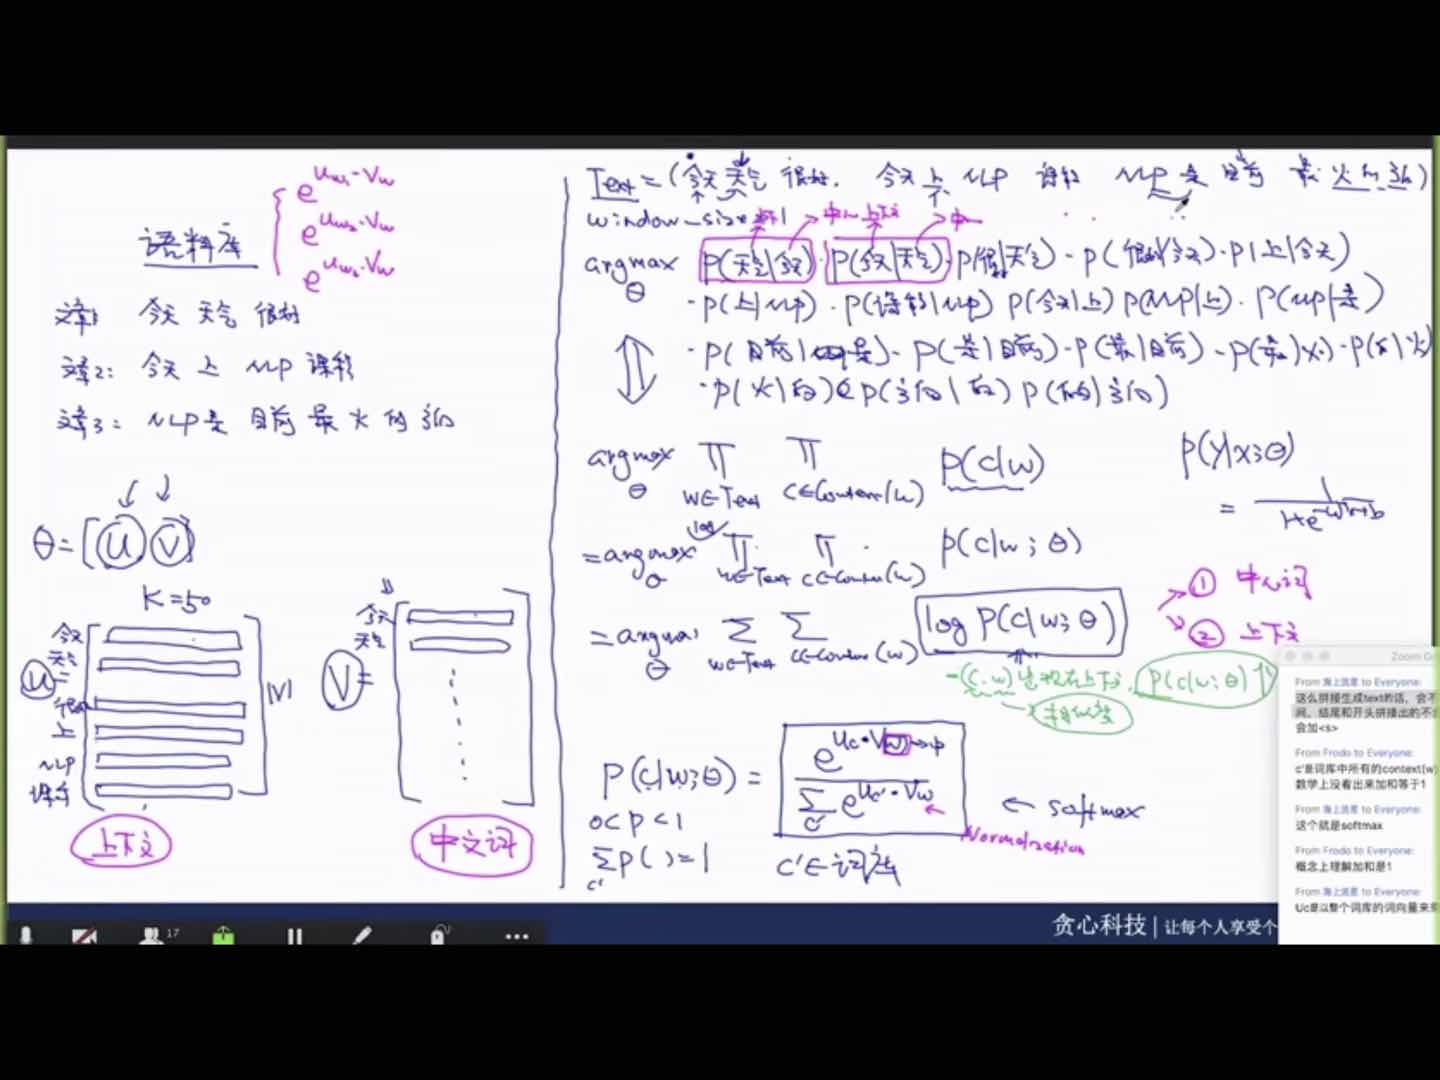 语料库
e^{u_{w1}·v_w}
e^{u_{w2}·v_w}
e^{u_{w3}·v_w}
文章1 今天 天气 很好
文章2: 今天 上 NLP 课程
文章3: NLP是 目前 最 火 的 方向
θ=[u v]
K=50
今天
天气
u=
很好
上
NLP
课程
|V|
上下文
今天
天气
V=
中文词
Text=(今天 天气 很好. 今天 上 NLP 课程 NLP 是 目前 最 火的 方向)
window_size=1 中心 上下文 中心
argmax θ P(天气|今天)·P(今天|天气)·P(很好|天气)·P(很好|今天)·P(上|今天)
·P(上|NLP)·P(课程|NLP) P(今天|上) P(NLP|上)·P(NLP|是)
·P(目前|是)·P(是|目前)·P(最|目前)·P(最|火)·P(的|火)
·P(火|的) P(方向|的) P(的|方向)
argmax θ ∏ w∈Text ∏ c∈Context(w) P(c|w)
P(y|x;θ)
= 1/(1+e^{-w^T x+b})
=argmax θ ∏ w∈Text ∏ c∈Context(w) P(c|w;θ)
log
=argmax θ ∑ w∈Text ∑ c∈Context(w) log P(c|w;θ)
① 中心词
② 上下文
-(c,w)出现在上下文, P(c|w;θ)↑
→相似度
P(c|w;θ) = e^{u_c·v_w} / ∑_{c'} e^{u_{c'}·v_w} ← softmax
Normalization
0<P<1
∑_{c'} P( )=1
c'∈词库
Zoom G
From 海上流星 to Everyone:
这么拼接生成text的话，会不
间，结尾和开头拼接出的不
会加<s>
From Frodo to Everyone:
c'是词库中所有的context(w)
数学上没看出来加和等于1
From 海上流星 to Everyone:
这个就是softmax
From Frodo to Everyone:
概念上理解加和是1
From 海上流星 to Everyone:
Uc是以整个词库的词向量来
17
贪心科技 | 让每个人享受个